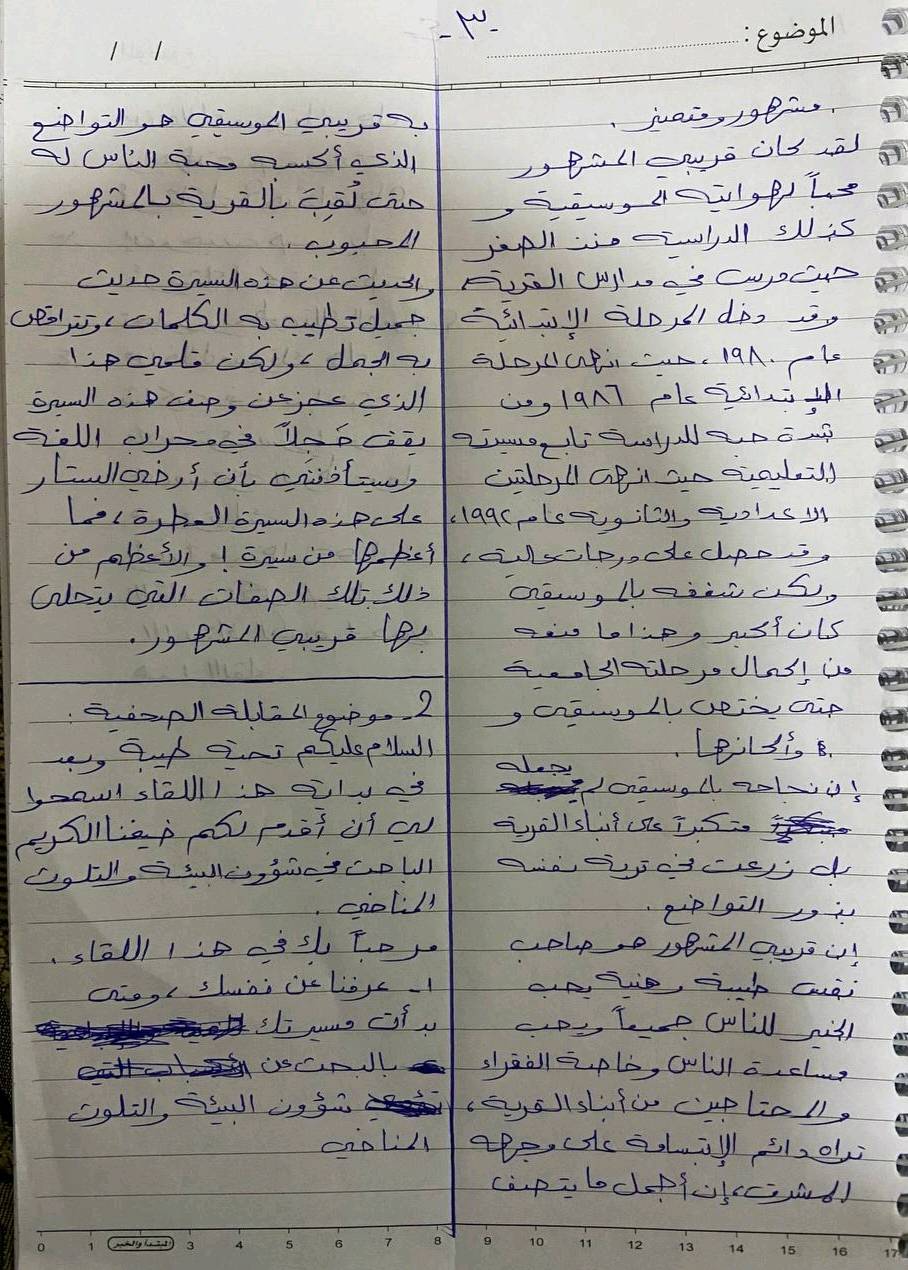 الموضوع :
-٣-
/ /
مشهور ومتميز .
لقد كان قريبي المشهور
محباً لهوايته الموسيقية و
كذلك الدراسية منذ الصغر
حيث درست في مدارس القرية
وقد دخل المرحلة الإبتدائية
عام ١٩٨٠، حيث انهى المرحلة
الإبتدائية عام ١٩٨٦ ومن
شدة حبه للدراسة تابع مسيرته
التعليمية حيث انهى المرحلتين
الاعدادية والثانوية عام ١٩٩٢،
وقد حصل على درجات عالية ،
ولكن شغفه بالموسيقى
كان أكبر وهذا ما منعه
من إكمال مرحلته الجامعية
حتى يختص بالموسيقى و
وألحانها .
إن نجاحه بالموسيقى لم يجعله
متكبراً على أبناء القرية
بل زرعت في تربة نفسه
بذور التواضع .
إن قريبي المشهور هو صاحب
نفس طيبة وهنية يحب
الخير للناس جميعاً ويحب
مساعدة الناس وخاصة الفقراء
والمحتاجين من أبناء القرية ،
تراه دائم الإبتسامة على وجهه
المشرق، إن أجمل ما يتصف
به قريبي الموسيقي هو التواضع
الذي أكسبه محبة الناس له
حتى لُقِبَ بالقرية بالمشهور
المحبوب .
والحديث عن هذه السيرة حديث
جميل تطيب به الكلمات ، وتتراقص
به الجمل ، ولكن قلمي هذا
الذي عجز عن وصف هذه السيرة
يقف خَجِلاً في محراب اللغة
ويستأذنني بأن أرخي الستار
على هذه السيرة العطرة ، فما
أعظمها من سيرة ! والأعظم من
ذلك تلك الصفات التي يتحلى
بها قريبي المشهور .
2- موضوع المقابلة الصحفية :
السلام عليكم تحية طيبة وبعد
في بداية هذا اللقاء اسمحوا
لي أن أقدم لكم ضيفنا الكريم
الباحث في شؤون البيئة والتلوث
المناخي .
مرحباً بك في هذا اللقاء .
١- عرفنا عن نفسك ، ومتى
بدأت مسيرتك
بالبحث عن
شؤون البيئة والتلوث
المناخي
0 1 المبتدأ والخبر 3 4 5 6 7 8 9 10 11 12 13 14 15 16 17